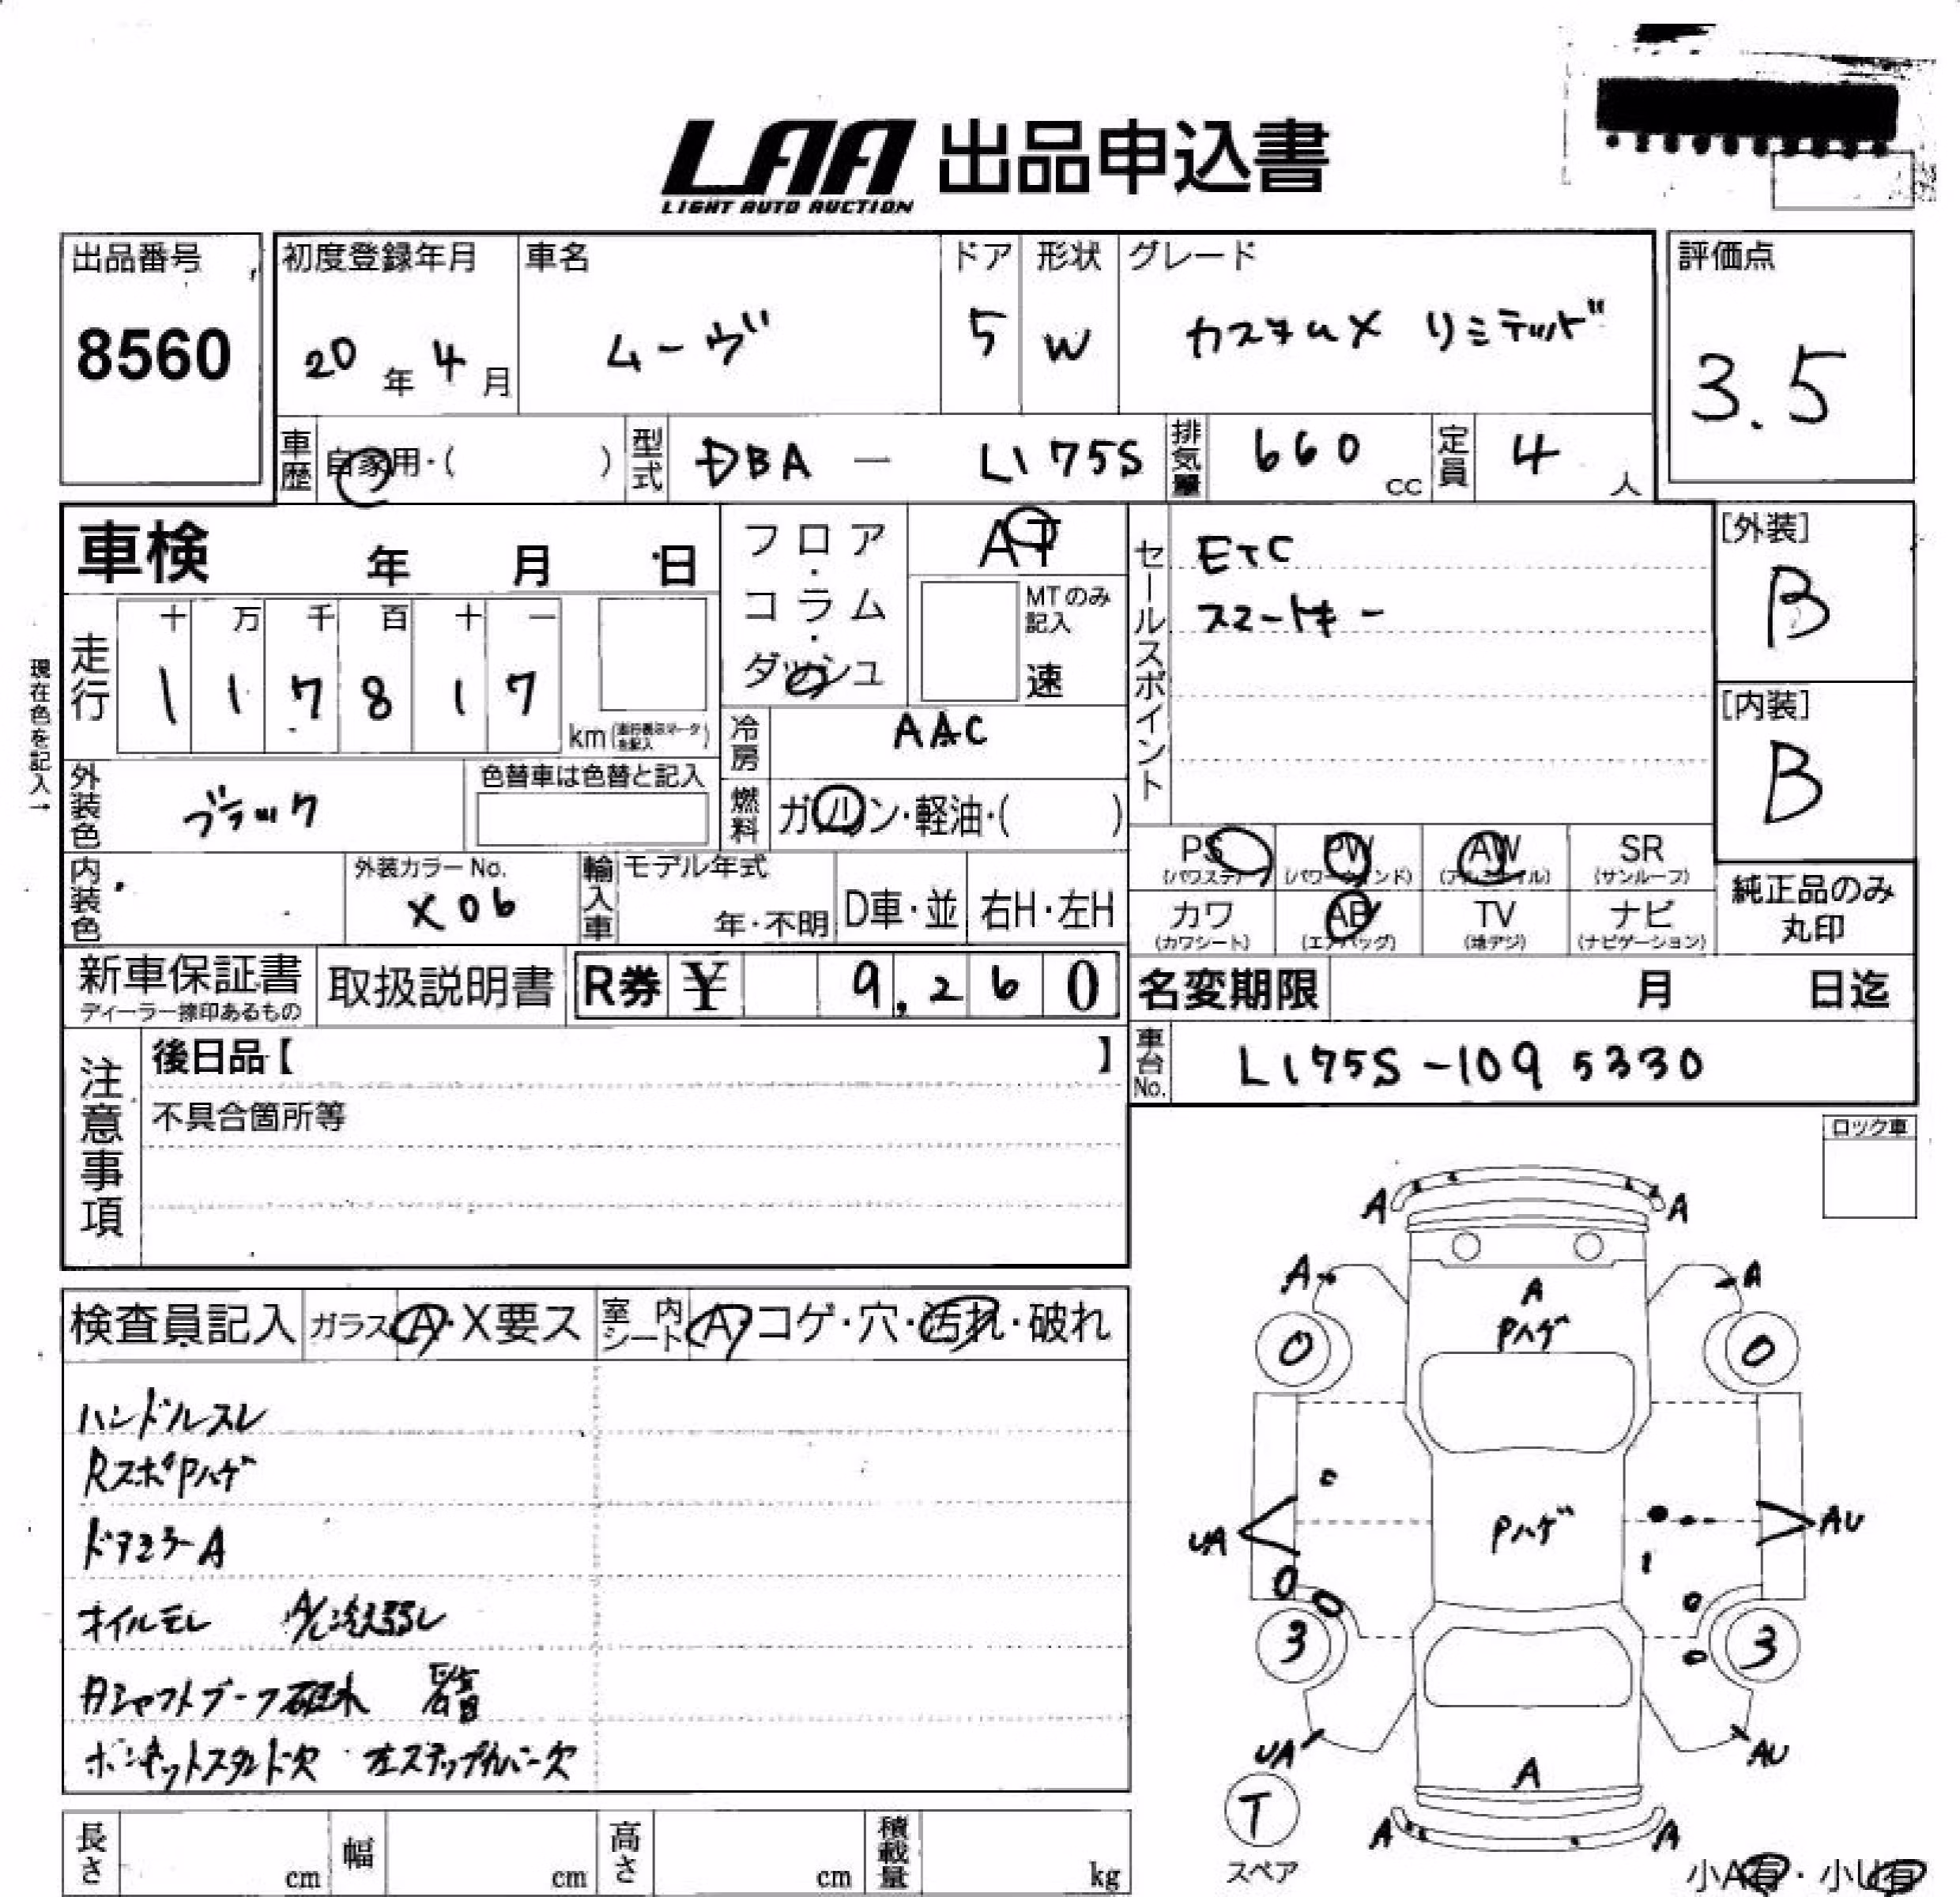 LAA 出品申込書
LIGHT AUTO AUCTION
出品番号
8560
初度登録年月
20年4月
車名
ムーヴ
ドア
5
形状
W
グレード
カスタムX リミテッド
評価点
3.5
車歴
自家用・( )
型式
DBA - L175S
排気量
660 cc
定員
4 人
車検 年 月 日
現在色を記入→
走行
十 万 千 百 十 一
1 1 7 8 1 7
km
フロア・コラム・ダッシュ
AT
MTのみ記入
速
冷房
AAC
燃料
ガソリン・軽油・( )
セールスポイント
ETC
スマートキー
[外装]
B
[内装]
B
外装色
ブラック
色替車は色替と記入
内装色
外装カラーNo.
X06
輸入車
モデル年式
年・不明
D車・並
右H・左H
PS (パワステ)
PW (パワーウインド)
AW (アルミホイル)
SR (サンルーフ)
カワ (カワシート)
AB (エアバッグ)
TV (地デジ)
ナビ (ナビゲーション)
純正品のみ丸印
新車保証書
ディーラー捺印あるもの
取扱説明書
R券 ¥ 9,260
名変期限 月 日迄
車台No.
L175S-1095330
注意事項
後日品【 】
不具合箇所等
ロック車
検査員記入
ガラス A・X要ス
室内シート A・コゲ・穴・汚れ・破れ
ハンドルスレ
RスポPハゲ
ドアミラーA
オイルモレ A/C冷え弱し
シャフトブーツ破れ
ボンネットスタンド欠 左ステップカバー欠
A A
A A
A
Pハゲ
0 0
Pハゲ
UA AU
3 3
UA AU
A
T
スペア
A A
小A有・小U有
長さ cm
幅 cm
高さ cm
積載量 kg